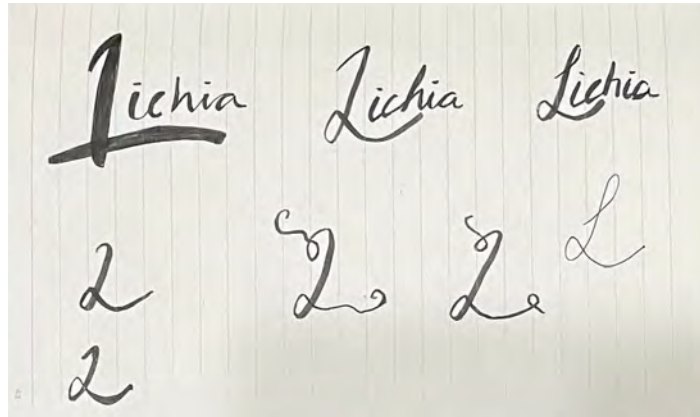 Lichia Lichia Lichia
L L L L
L